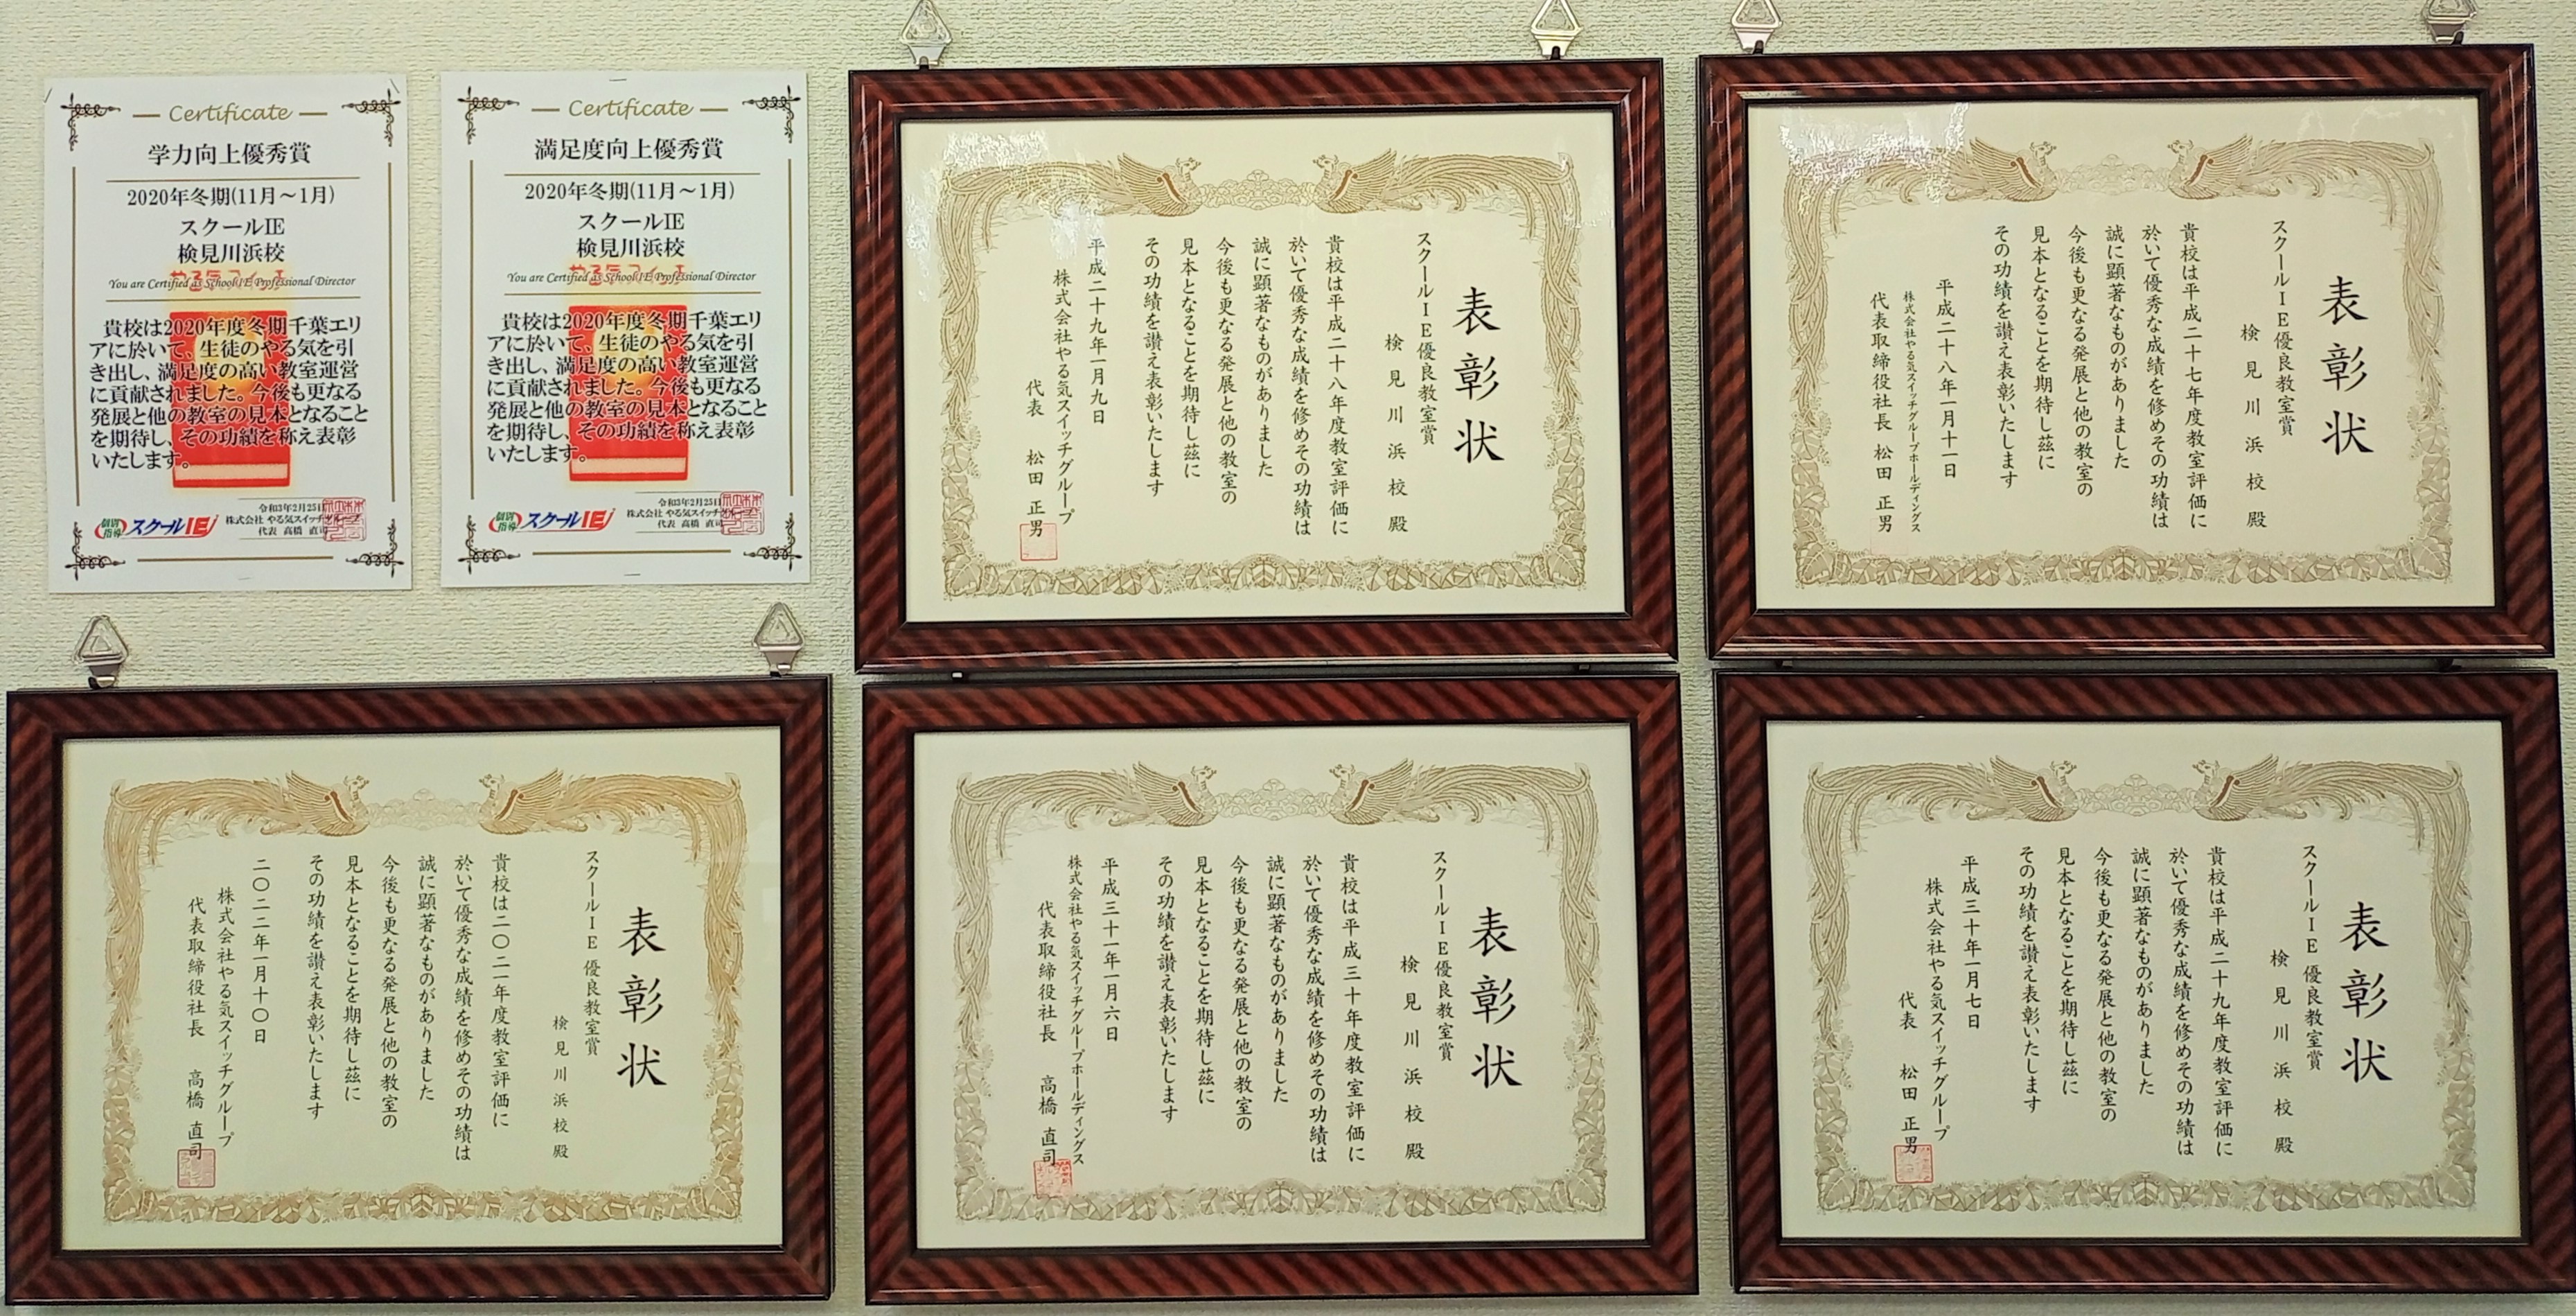 Certificate
学力向上優秀賞
2020年冬期(11月～1月)
スクールIE
検見川浜校
やる気スイッチ
You are Certified as School IE Professional Director
貴校は2020年度冬期千葉エリ
アに於いて、生徒のやる気を引
き出し、満足度の高い教室運営
に貢献されました。今後も更なる
発展と他の教室の見本となること
を期待し、その功績を称え表彰
いたします。
令和3年2月25日
株式会社 やる気スイッチグループ
代表 高橋 直司
個別指導 スクールIE
Certificate
満足度向上優秀賞
2020年冬期(11月～1月)
スクールIE
検見川浜校
やる気スイッチ
You are Certified as School IE Professional Director
貴校は2020年度冬期千葉エリ
アに於いて、生徒のやる気を引
き出し、満足度の高い教室運営
に貢献されました。今後も更なる
発展と他の教室の見本となること
を期待し、その功績を称え表彰
いたします。
令和3年2月25日
株式会社 やる気スイッチグループ
代表 高橋 直司
個別指導 スクールIE
表彰状
スクールＩＥ優良教室賞
検見川浜校殿
貴校は平成二十八年度教室評価に
於いて優秀な成績を修めその功績は
誠に顕著なものがありました
今後も更なる発展と他の教室の
見本となることを期待し茲に
その功績を讃え表彰いたします
平成二十九年一月九日
株式会社やる気スイッチグループ
代表 松田 正男
表彰状
スクールＩＥ優良教室賞
検見川浜校殿
貴校は平成二十七年度教室評価に
於いて優秀な成績を修めその功績は
誠に顕著なものがありました
今後も更なる発展と他の教室の
見本となることを期待し茲に
その功績を讃え表彰いたします
平成二十八年一月十一日
株式会社やる気スイッチグループホールディングス
代表取締役社長 松田 正男
表彰状
スクールＩＥ 優良教室賞
検見川浜校殿
貴校は二〇二一年度教室評価に
於いて優秀な成績を修めその功績は
誠に顕著なものがありました
今後も更なる発展と他の教室の
見本となることを期待し茲に
その功績を讃え表彰いたします
二〇二二年一月十〇日
株式会社やる気スイッチグループ
代表取締役社長 高橋 直司
表彰状
スクールＩＥ優良教室賞
検見川浜校殿
貴校は平成三十年度教室評価に
於いて優秀な成績を修めその功績は
誠に顕著なものがありました
今後も更なる発展と他の教室の
見本となることを期待し茲に
その功績を讃え表彰いたします
平成三十一年一月六日
株式会社やる気スイッチグループホールディングス
代表取締役社長 高橋 直司
表彰状
スクールＩＥ 優良教室賞
検見川浜校殿
貴校は平成二十九年度教室評価に
於いて優秀な成績を修めその功績は
誠に顕著なものがありました
今後も更なる発展と他の教室の
見本となることを期待し茲に
その功績を讃え表彰いたします
平成三十年一月七日
株式会社やる気スイッチグループ
代表 松田 正男